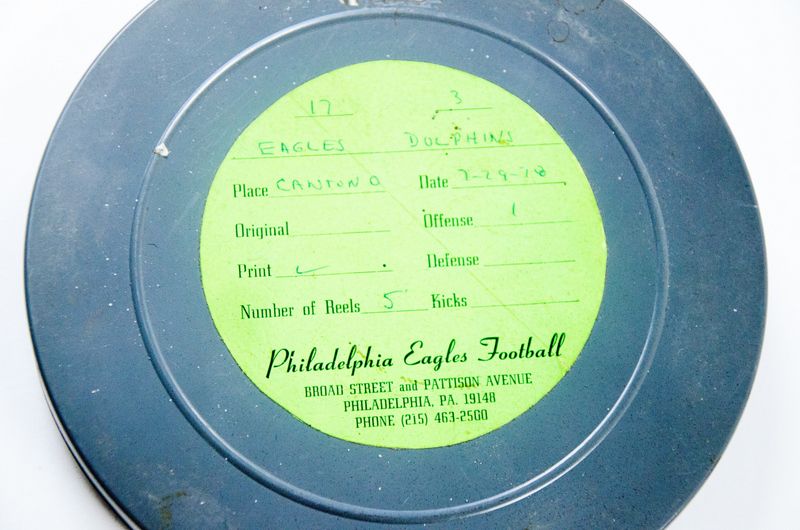 17 3
EAGLES DOLPHINS
Place CANTON O Date 7-29-78
Original Offense 1
Print ✓ Defense
Number of Reels 5 Kicks
Philadelphia Eagles Football
BROAD STREET and PATTISON AVENUE
PHILADELPHIA, PA. 19148
PHONE (215) 463-2500